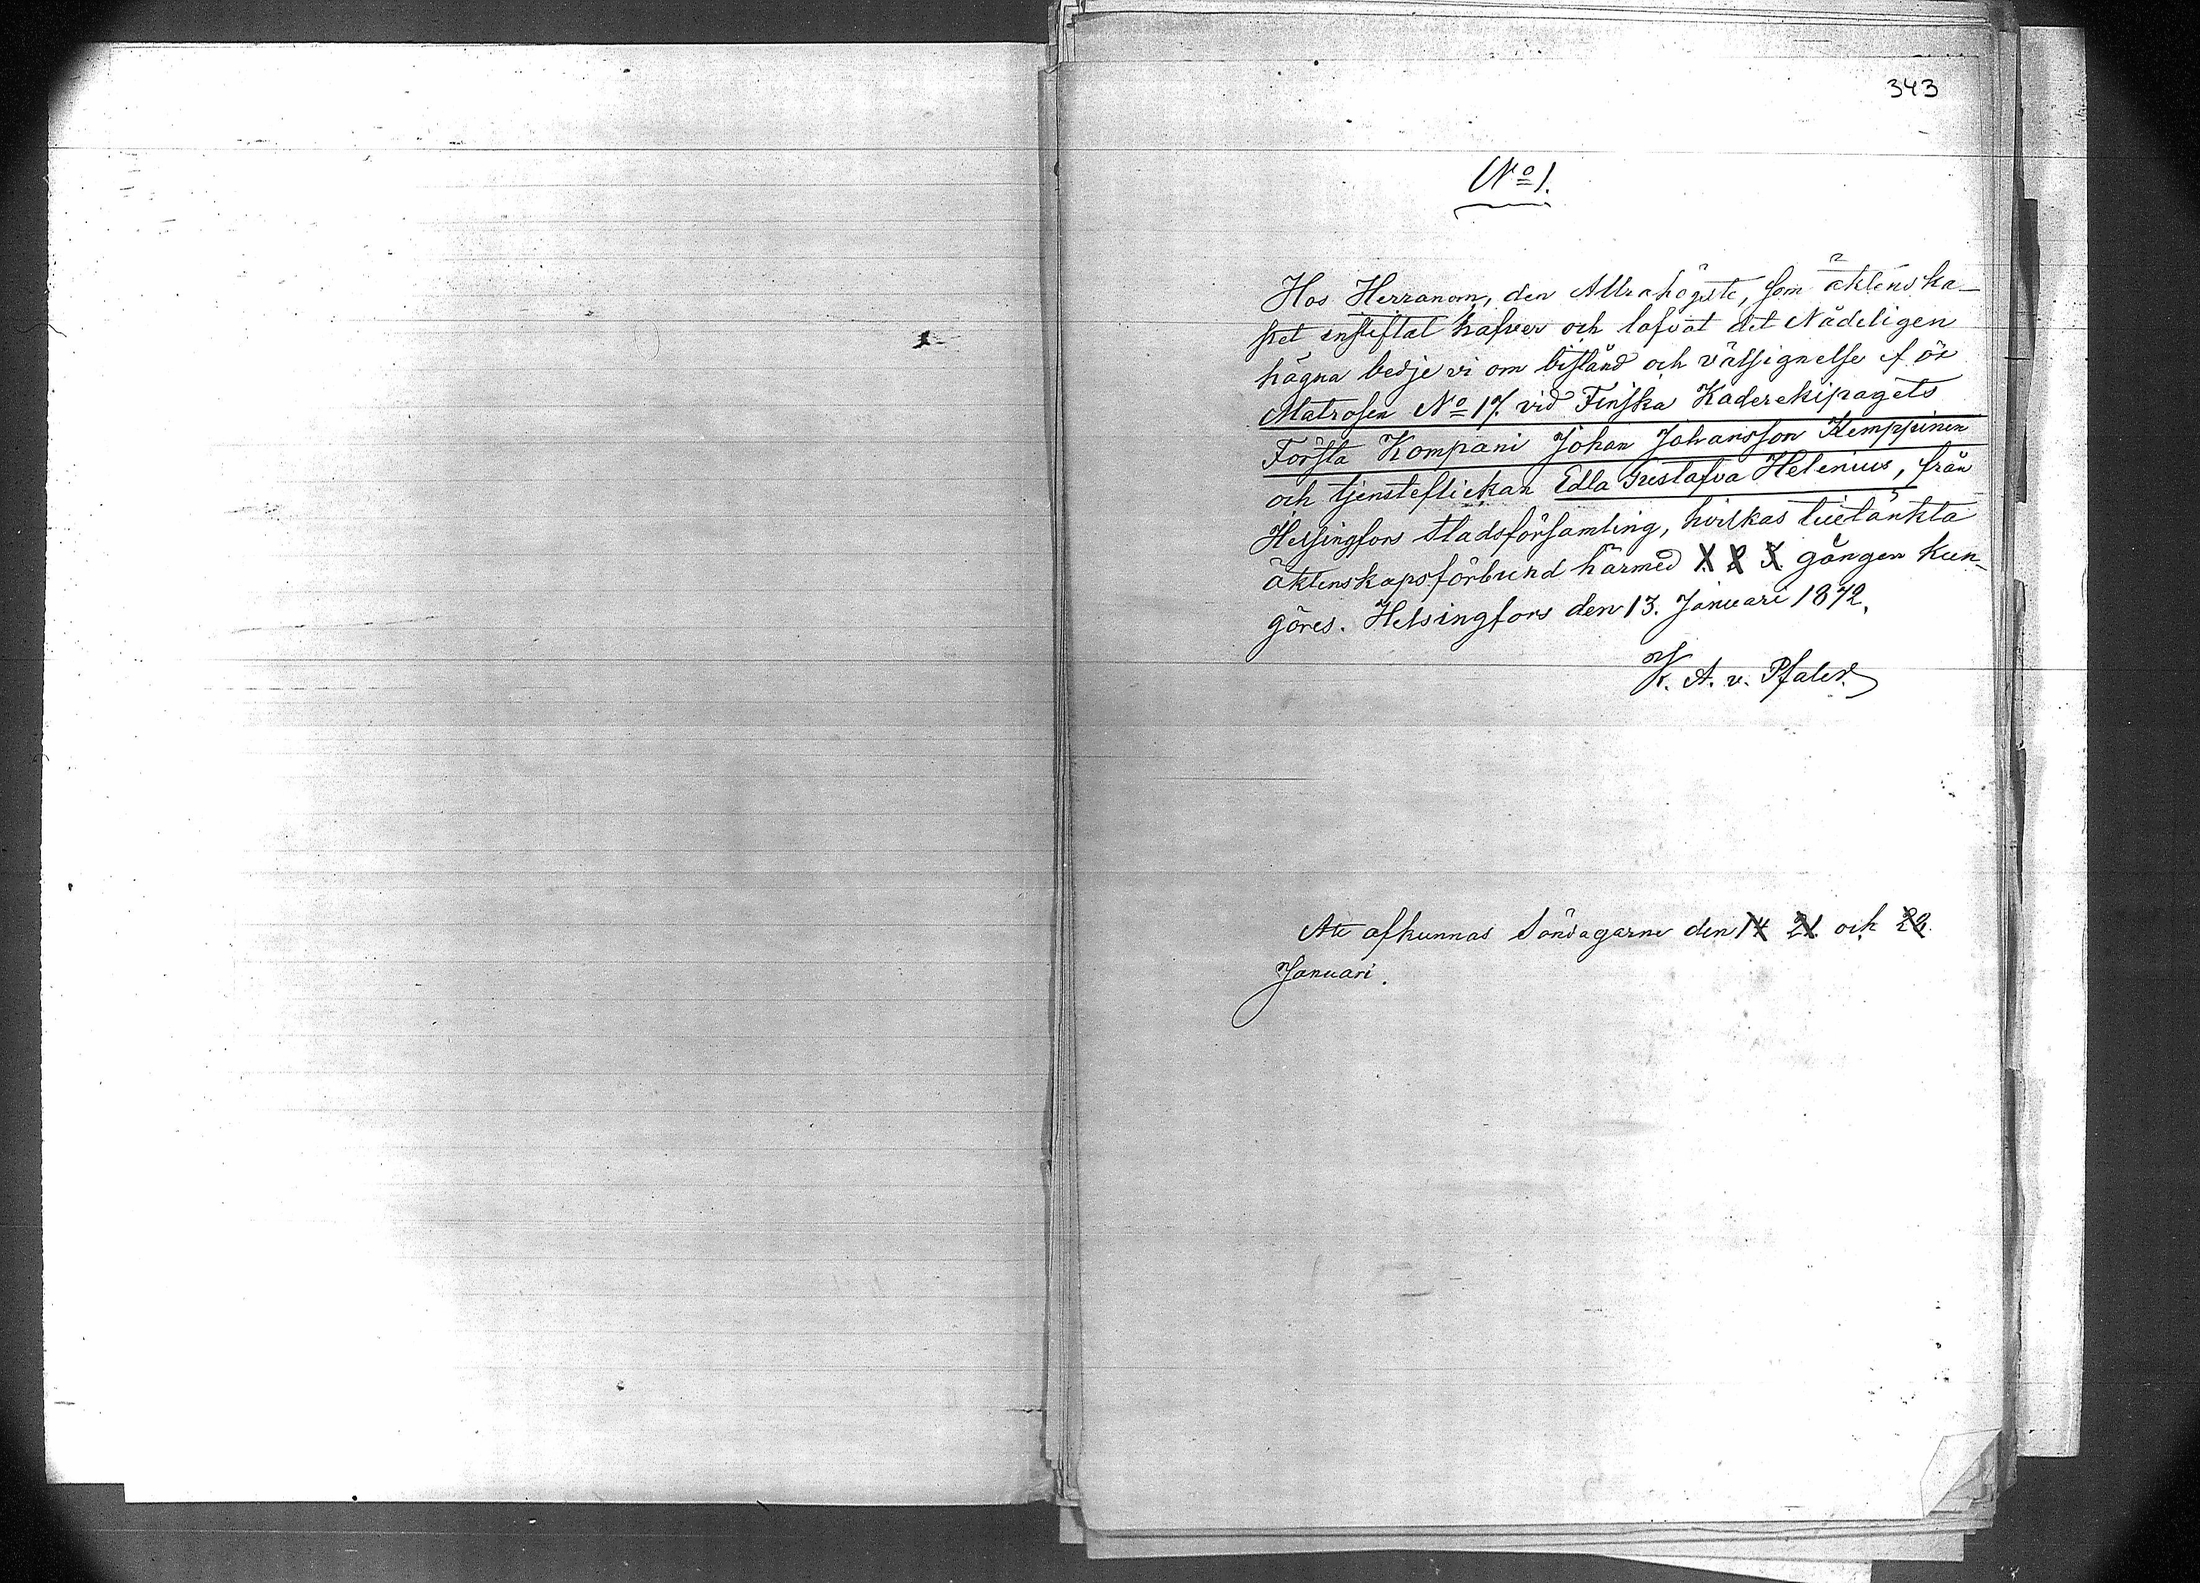 343
No 1.
Hos Herranom, den Allrahögste, som äktenska-
pet instiftat hafver och lofvat det Nådeligen
hägna bedje vi om bistånd och välsignelse för
Matrosen No 17. vid Finska Kaderekipagets
Första Kompani Johan Johansson Kemppinen
och tjensteflickan Edla Gustafva Helenius, från
Helsingfors stadsförsamling, hvilkas tilltänkta
äktenskapsförbund härmed 1. 2. 3. gången kun-
göres. Helsingfors den 13. Januari 1872.
K. A. v. Pfaler.
Att afkunnas Söndagarne den 14 21 och 28
Januari.